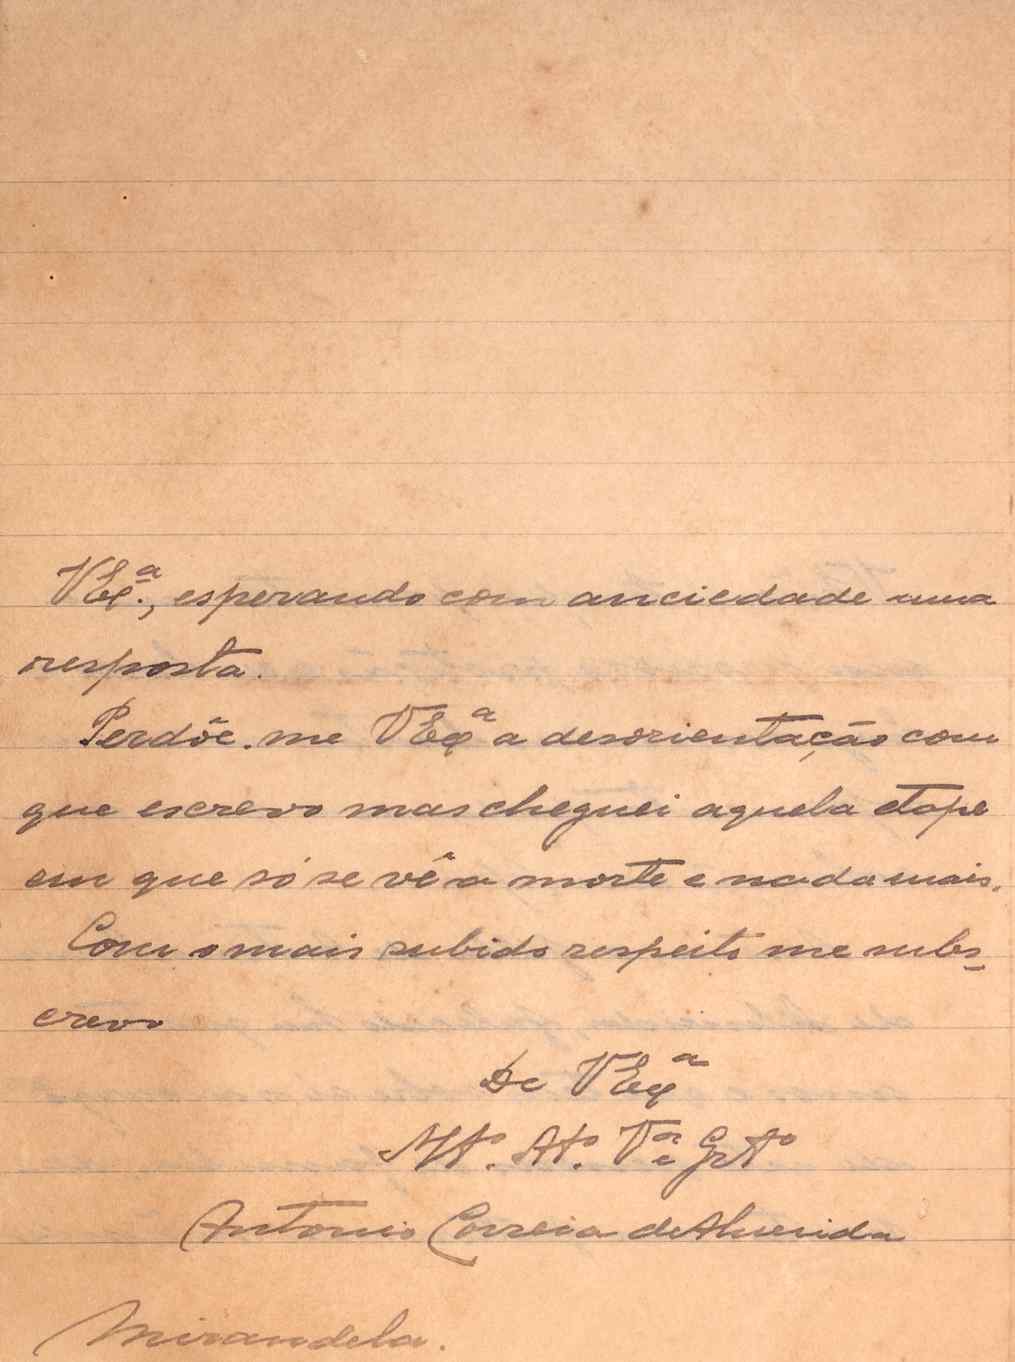 VExª., esperando com anciedade uma
resposta.
Perdôe-me VExª a desorientação com
que escrevo mas cheguei aquela etape
em que só se vê a morte e nada mais.
Com o mais subido respeito me subs-
crevo
De VExª
Mtº. Atº. Vª e Grtº
Antonio Correia de Almeida
Mirandela.